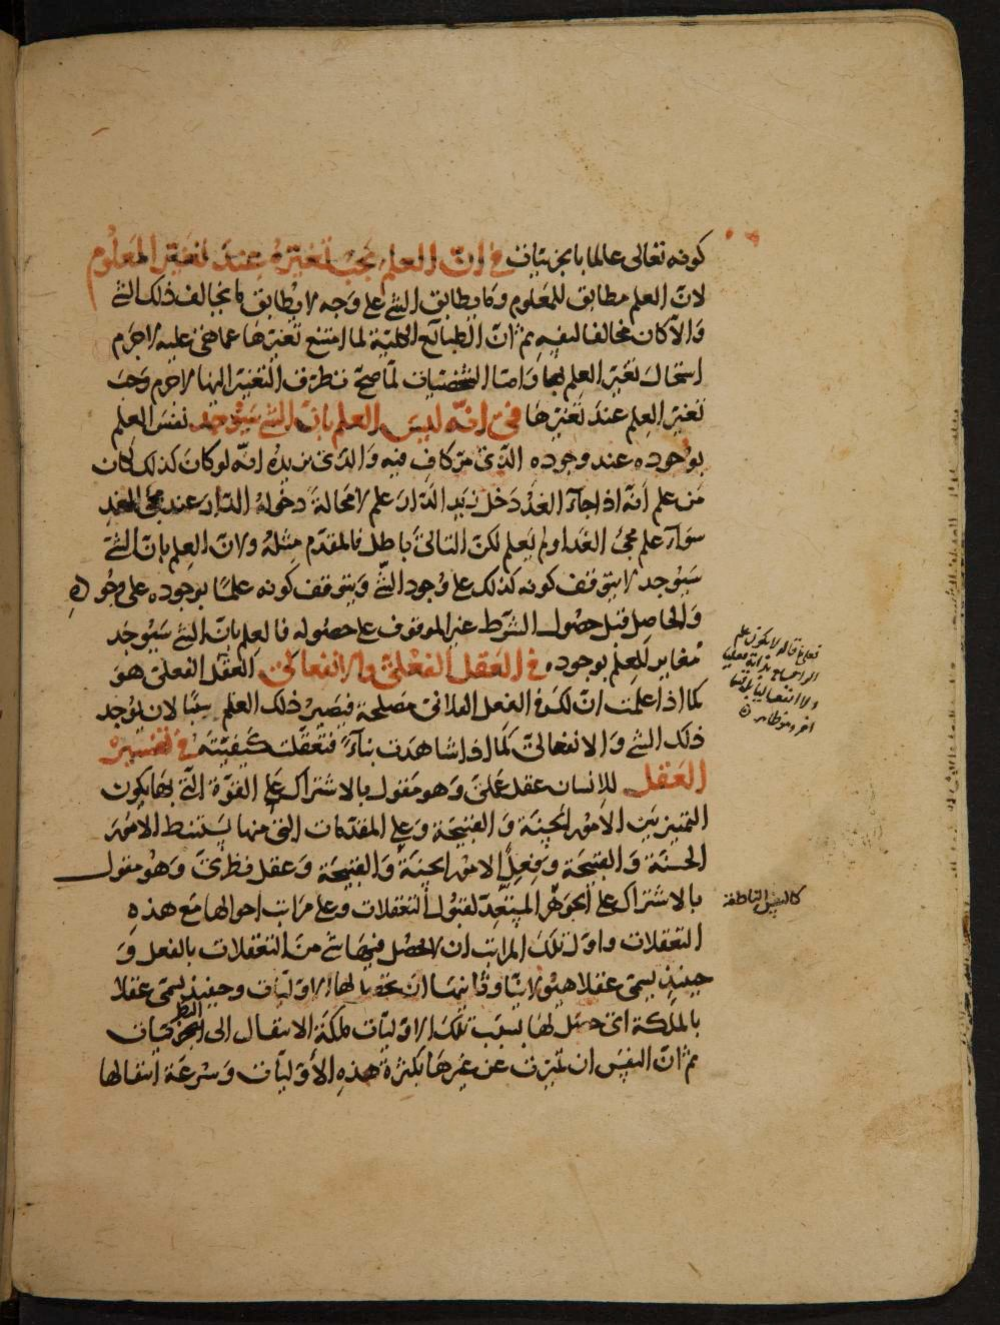 كونه تعالى عالما بالجزئيات في ان العلم يجب تغيره عند تغير المعلوم
لان العلم مطابق للمعلوم وما يطابق الشئ على وجه لا يطابق ما يخالف ذلك الشئ
والا كان مخالفا لنفسه ثم ان الطبائع الكلية لما امتنع تغيرها عما هي عليه لاجرم
استحال تغير العلم بها واما الشخصيات لما صح تطرف التغير اليها لاجرم وجب
تغير العلم عند تغيرها في انه ليس العلم بان الشئ سيوجد نفس العلم
بوجوده عند وجوده الذي مر كاف فيه والذي نريده انه لو كان كذلك لكان
من علم انه اذا جاء الغد دخل زيد الدار علم لا محالة دخوله الدار عند مجئ الغد
سوآء علم مجئ الغد او لم يعلم لكن التالي باطل فالمقدم مثله ولان العلم بان الشئ
سيوجد لا يتوقف كونه كذلك على وجود الشئ ويتوقف كونه علما بوجوده على وجوده
والحاصل قبل حصول الشرط غير الموقوف على حصوله فالعلم بان الشئ سيوجد
مغاير للعلم بوجوده في العقل الفعلي والانفعالي العقل الفعلي هو
كما اذا علمت ان لك في الفعل الفلاني مصلحة فيصير ذلك العلم سببا لان يوجد
ذلك الشئ والانفعالي كما اذا شاهدت بناء فتعقلت كيفيته في تفسير
العقل للانسان عقل عملي وهو مقول بالاشتراك على القوة التي بها يكون
التمييز بين الامور الحسنة والقبيحة وعلى المقدمات التي منها يستنبط الامور
الحسنة والقبيحة وفعل الامور الحسنة والقبيحة وعقل نظري وهو مقول
بالاشتراك على الجوهر المستعد لقبول التعقلات وعلى مراتب احوالها مع هذه
التعقلات واول تلك المراتب ان لا يحصل فيها شئ من التعقلات بالفعل و
حينئذ يسمى عقلا هيولانيا وثانيها ان تحصل لها الاوليات وحينئذ يسمى عقلا
بالملكة اي حصل لها بسبب تلك الاوليات ملكة الانتقال الى النظريات
ثم ان النفس ان تميزت عن غيرها بكثرة هذه الاوليات وسرعة انتقالها
كالنفس الناطقة